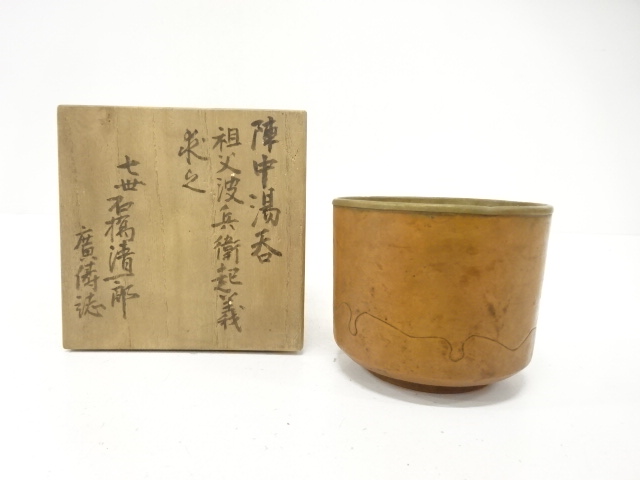 陣中湯呑
祖父波兵衛起義
求之
七世石橋清一郎
廣儔誌